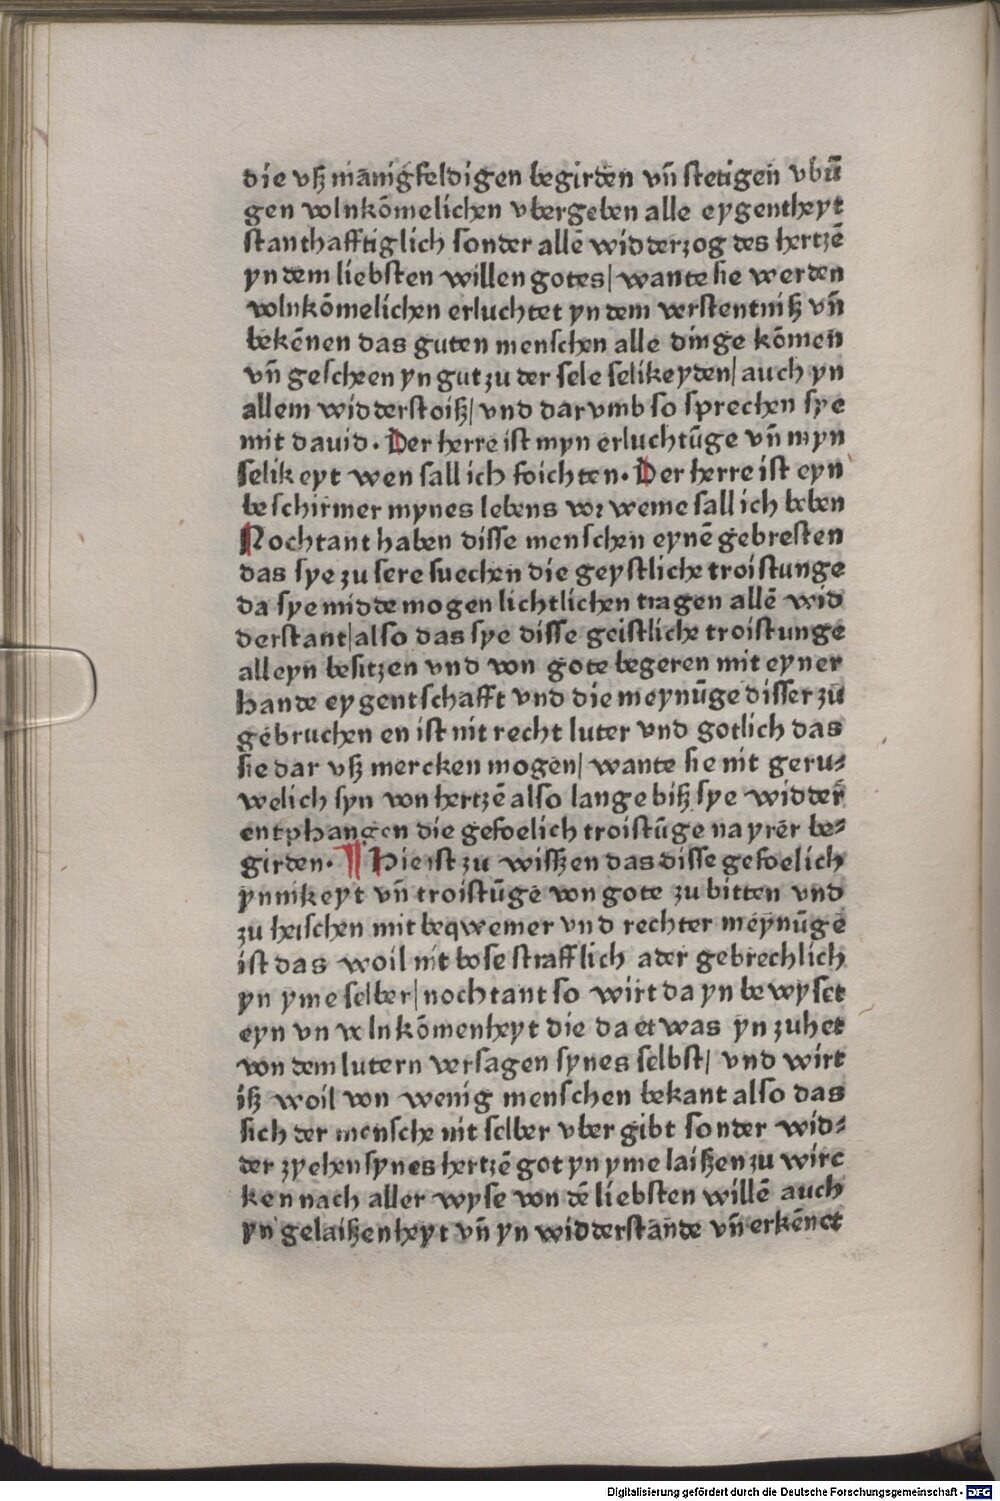 die vſz mānigfeldigen begirden vn̄ ſtetigen vbū
gen volnkōmelichen vbergeben alle eygentheyt
ſtanthafftiglich ſonder allē widderzog des hertzē
yn dem liebſten willen gotes/ wante ſie werden
volnkōmelichen erluchtet yn dem verſtentniſz vn̄
bekēnen das guten menſchen alle dinge kōmen
vn̄ geſcheen yn gut zu der ſele ſelikeyden/ auch yn
allem widderſtoiſz/ vnd darvmb ſo ſprechen ſye
mit dauid. Der herre iſt myn erluchtūge vn̄ myn
ſelikeyt wen ſall ich foichten. Der herre iſt eyn
beſchirmer mynes lebens voꝛ weme ſall ich beben
Nochtant haben diſſe menſchen eynē gebreſten
das ſye zu ſere ſuechen die geyſtliche troiſtunge
da ſye midde mogen lichtlichen tragen allē wid
derſtant/ alſo das ſye diſſe geiſtliche troiſtunge
alleyn beſitzen vnd von gote begeren mit eyner
hande eygentſchafft vnd die meynūge diſſer zu
gebruchen en iſt nit recht luter vnd gotlich das
ſie dar vſz mercken mogen/ wante ſie nit geru⸗
welich ſyn von hertzē alſo lange biſz ſye widder
entphangen die gefoelich troiſtūge na yrer be⸗
girden. ¶ Hie iſt zu wiſſzen das diſſe gefoelich
ynnikeyt vn̄ troiſtūge von gote zu bitten vnd
zu heiſchen mit beqwemer vnd rechter meynūge
iſt das woil nit boſe ſtrafflich ader gebrechlich
yn yme ſelber/ nochtant ſo wirt da yn bewyſet
eyn vnvolnkōmenheyt die da etwas yn zuhet
von dem lutern verſagen ſynes ſelbſt/ vnd wirt
iſz woil von wenig menſchen bekant alſo das
ſich der menſche nit ſelber vber gibt ſonder wid⸗
der zyehen ſynes hertzē got yn yme laiſzen zu wirc
ken nach aller wyſe von dē liebſten willē auch
yn gelaiſzenheyt vn̄ yn widderſtande vn̄ erkēnet
Digitalisierung gefördert durch die Deutsche Forschungsgemeinschaft - DFG